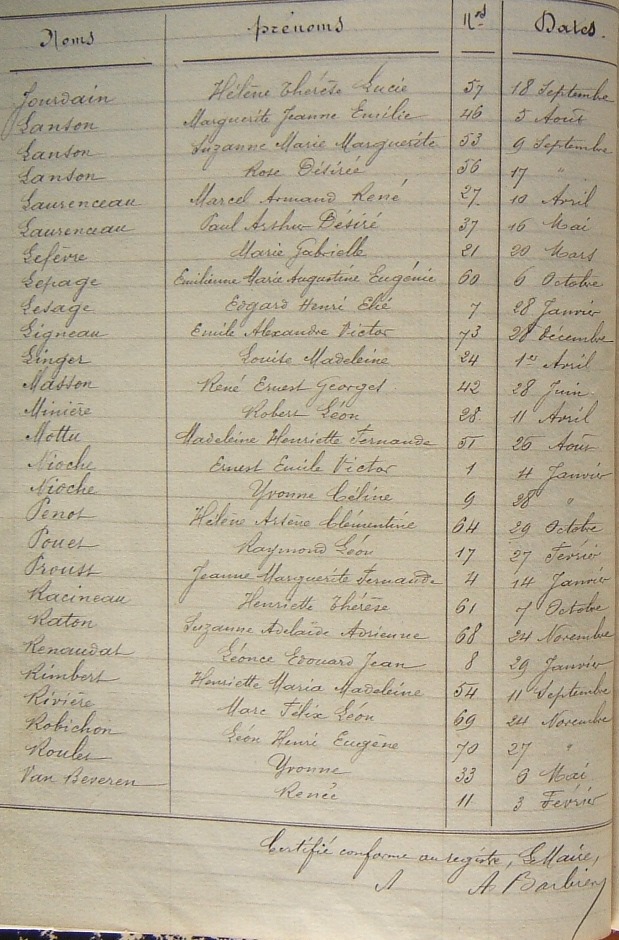 Noms prénoms Nos Dates.
Jourdain Hélène Thérèse Lucie 57 18 Septembre
Lanson Marguerite Jeanne Emilie 46 5 Août
Lanson Suzanne Marie Marguerite 53 9 Septembre
Lanson Rose Désirée 56 17 "
Laurenceau Marcel Armand René 27 10 Avril
Laurenceau Paul Arthur Désiré 37 16 Mai
Lefèvre Marie Gabrielle 21 20 Mars
Lepage Emilienne Marie Augustine Eugénie 60 6 Octobre
Lesage Edgard Henri Elié 7 28 Janvier
Ligneau Emile Alexandre Victor 73 28 Décembre
Linger Louise Madeleine 24 1er Avril
Masson René Ernest Georges 42 28 Juin
Minière Robert Léon 28 11 Avril
Mottu Madeleine Henriette Fernande 51 26 Août
Nioche Ernest Emile Victor 1 4 Janvier
Nioche Yvonne Céline 9 28 "
Penot Hélène Arsène Clémentine 64 29 Octobre
Pouet Raymond Léon 17 27 Février
Proust Jeanne Marguerite Fernande 4 14 Janvier
Racineau Henriette Thérèse 61 7 Octobre
Raton Suzanne Adelaïde Adrienne 68 24 Novembre
Renaudat Léonce Edouard Jean 8 29 Janvier
Rimbert Henriette Maria Madeleine 54 11 Septembre
Rivière Marc Félix Léon 69 24 Novembre
Robichon Léon Henri Eugène 70 27 "
Roulet Yvonne 33 6 Mai
Van Beveren Renée 11 3 Février
Certifié conforme au registre, Le Maire,
A Barbier